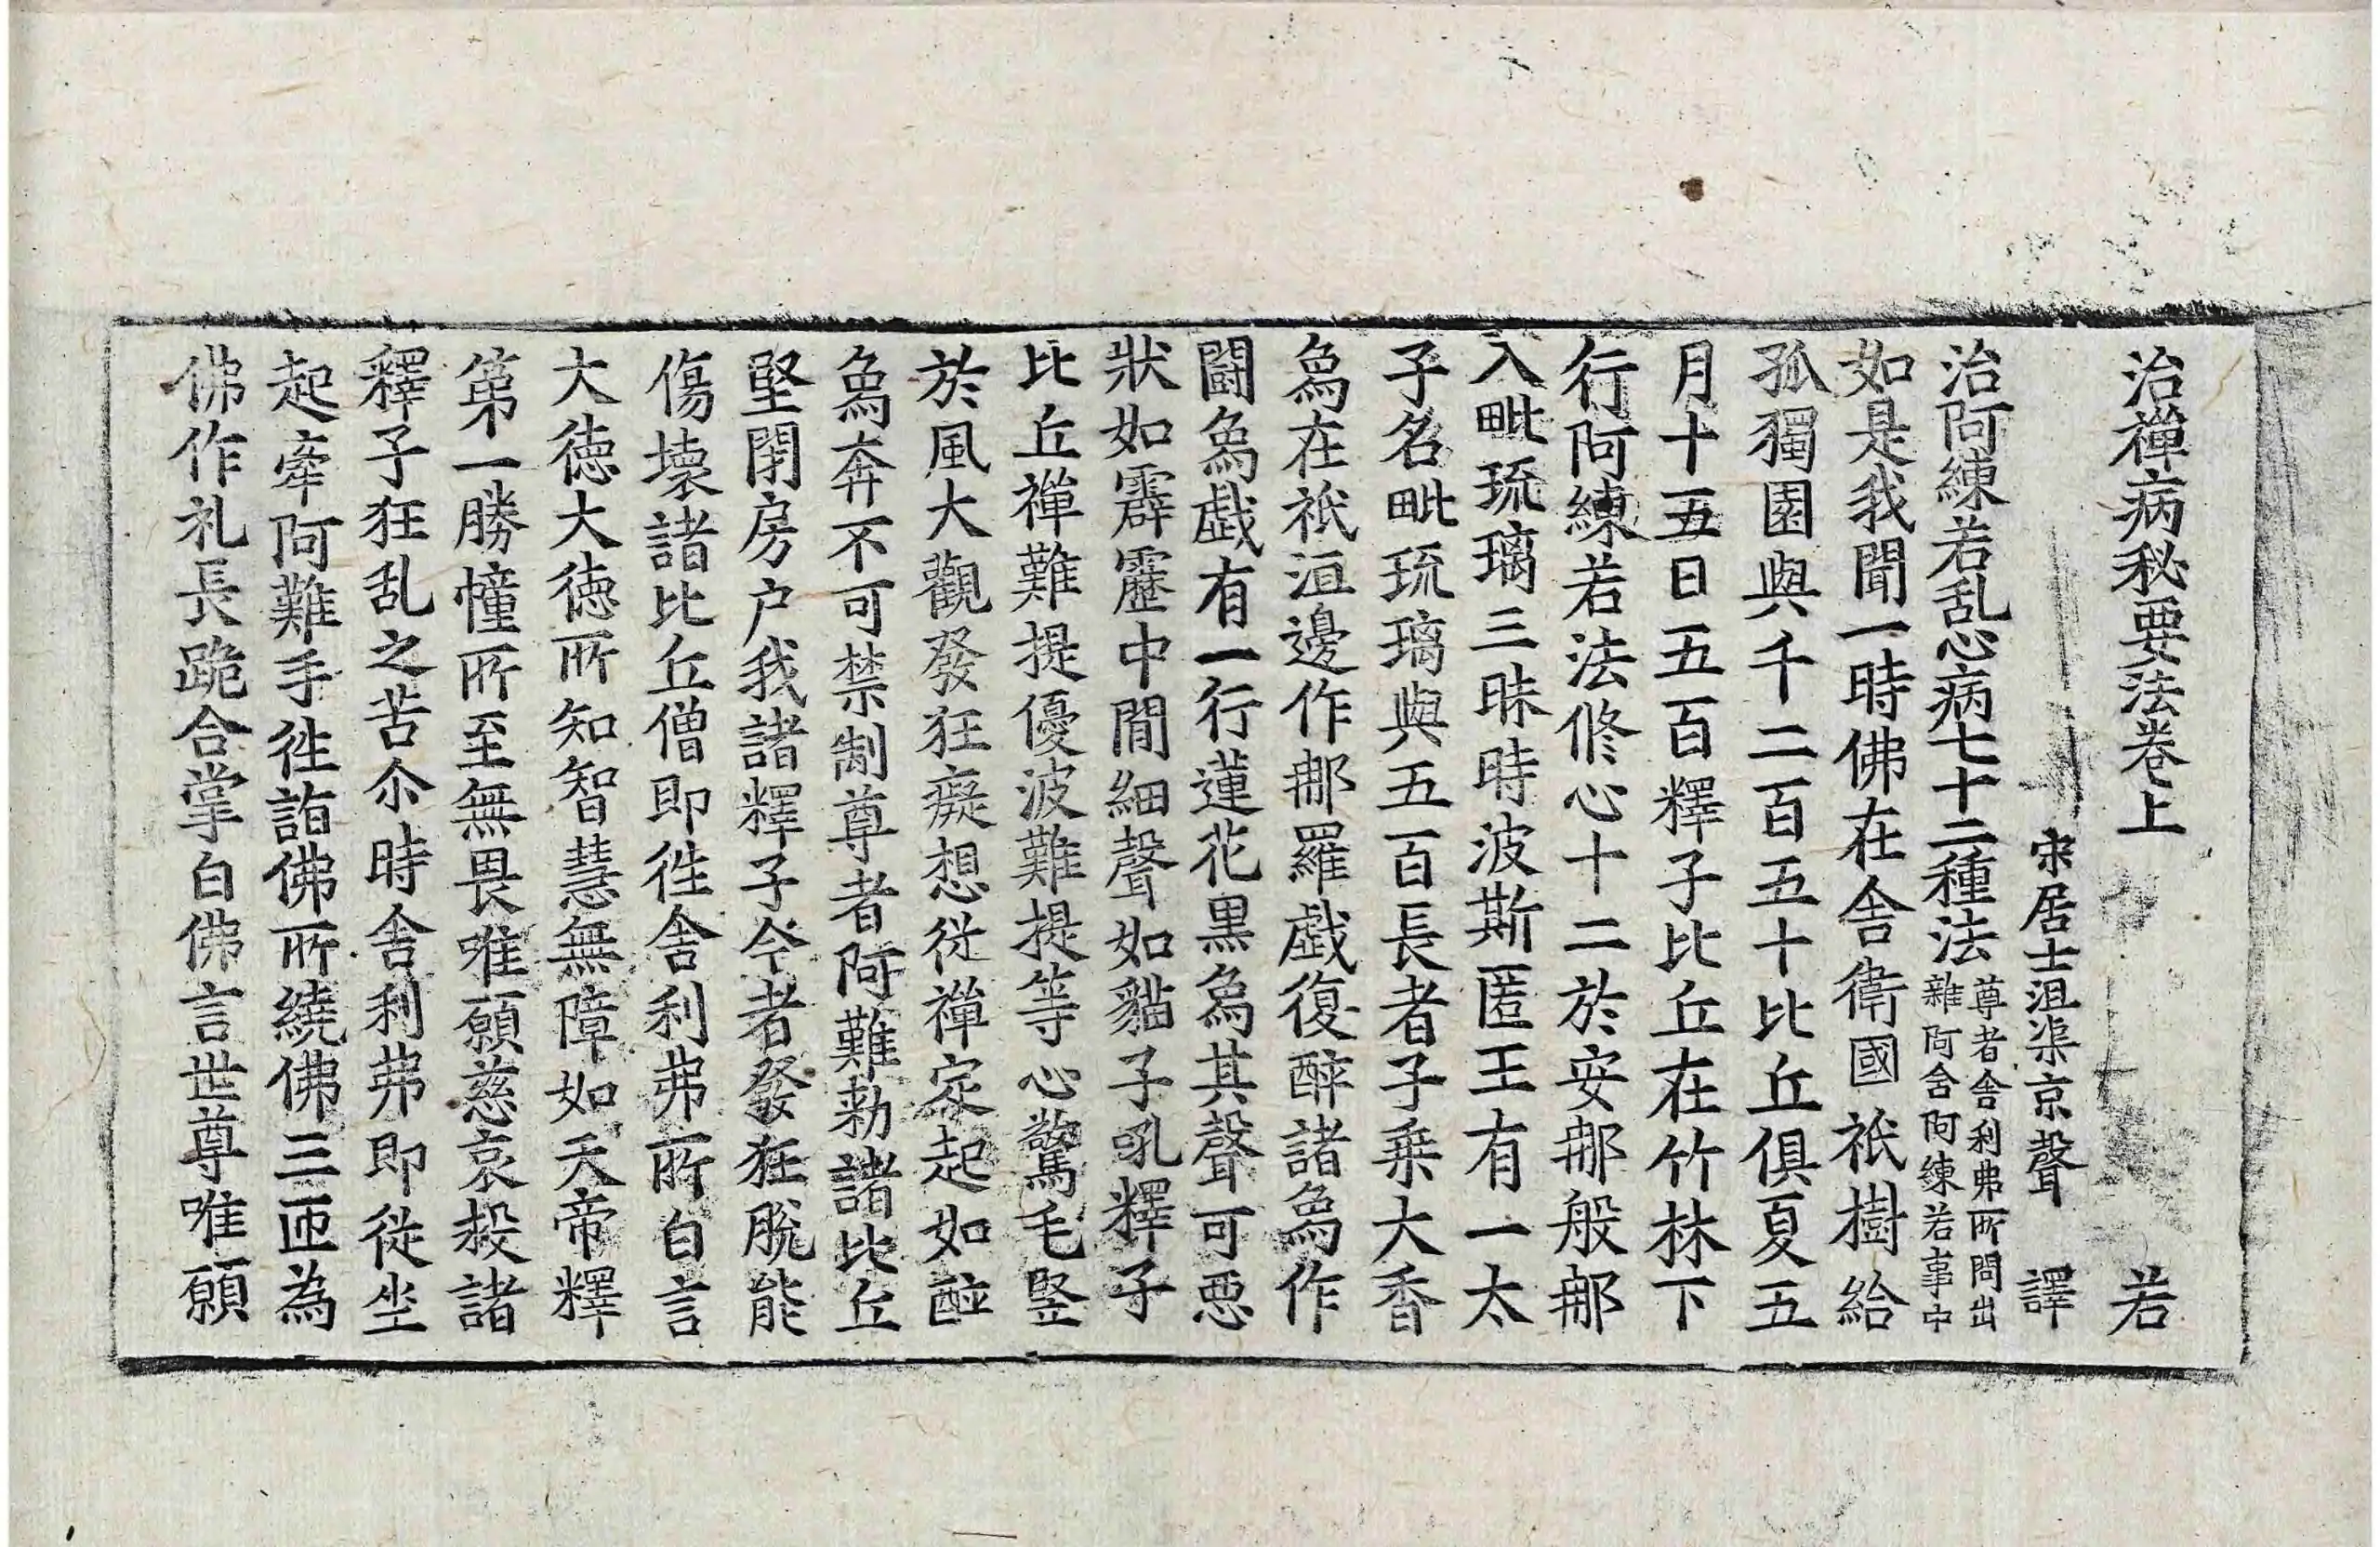 治禪病秘要法卷上 若
宋居士沮渠京聲 譯
治阿練若乱心病七十二種法 尊者舍利弗所問出雜阿含阿練若事中
如是我聞一時佛在舍衛國祇樹給
孤獨園與千二百五十比丘俱夏五
月十五日五百釋子比丘在竹林下
行阿練若法修心十二於安那般那
入毗琉璃三昧時波斯匿王有一太
子名毗琉璃與五百長者子乗大香
鳥在祇洹邊作那羅戲復醉諸鳥作
闘鳥戲有一行蓮花黒鳥其聲可悪
狀如霹靂中間細聲如猫子吼釋子
比丘禪難提優波難提等心驚毛竪
於風大觀發狂癡想從禪定起如醉
鳥奔不可禁制尊者阿難勑諸比丘
堅閇房户我諸釋子今者發狂脫能
傷壊諸比丘僧即往舍利弗所白言
大徳大徳所知智慧無障如天帝釋
第一勝幢所至無畏唯願慈哀救諸
釋子狂乱之苦尒時舍利弗即從坐
起牽阿難手往詣佛所繞佛三匝為
佛作礼長跪合掌白佛言世尊唯願